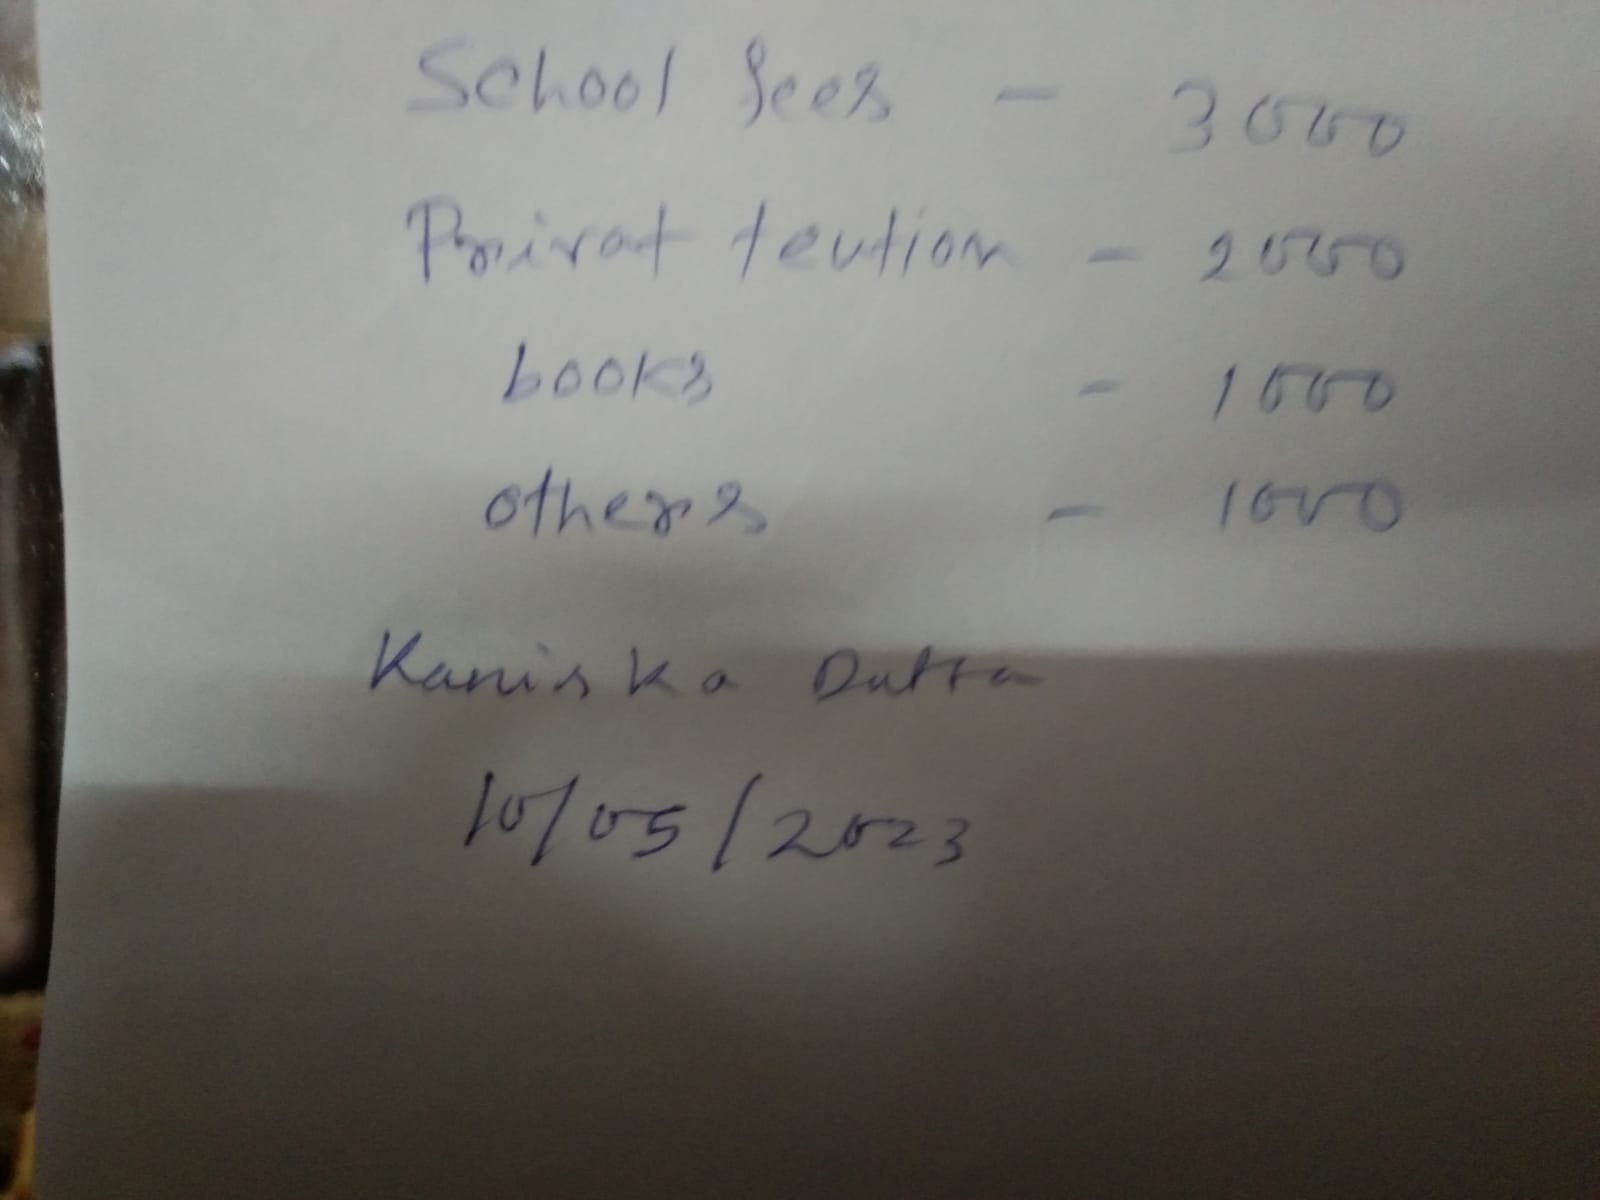 School fees - 3000
Privat teution - 2000
books - 1000
others - 1000
Kaniska Dutta
10/05/2023